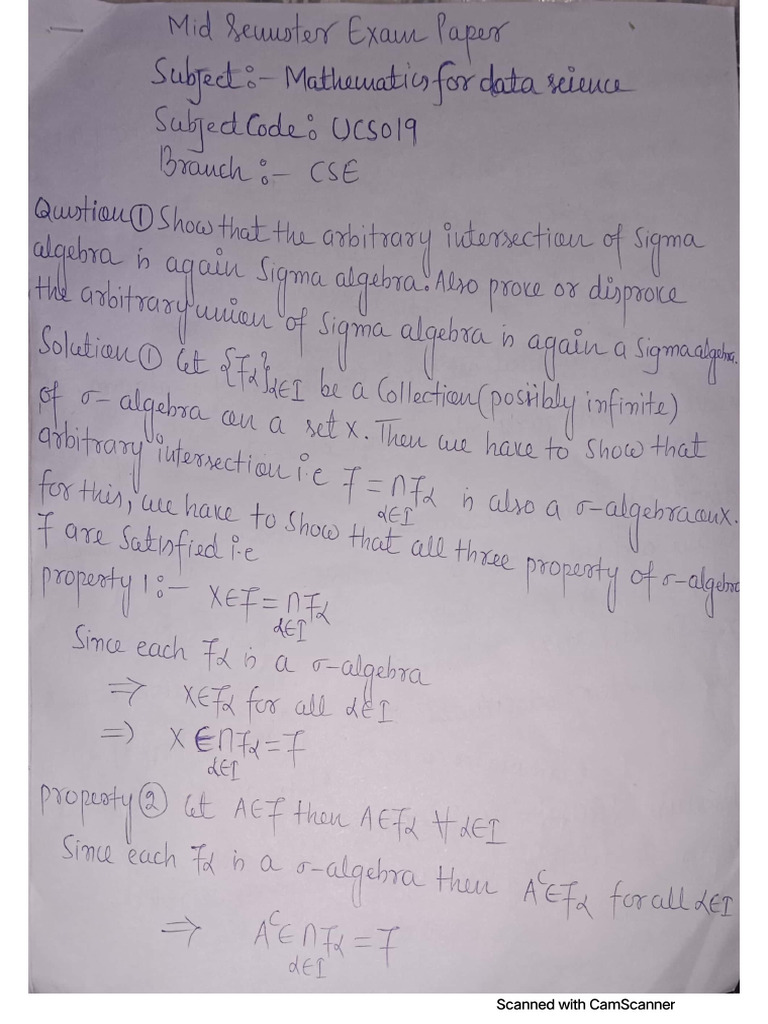 Mid Semester Exam Paper
Subject:- Mathematics for data science
Subject Code: UCS019
Branch :- CSE
Question ① Show that the arbitrary intersection of Sigma
algebra is again Sigma algebra. Also prove or disprove
the arbitrary union of Sigma algebra is again a Sigma algebra.
Solution ① let {Fα}α∈I be a Collection (possibly infinite)
of σ-algebra on a set X. Then we have to show that
arbitrary intersection i.e F = ∩Fα is also a σ-algebra on X.
α∈I
for this, we have to show that all three property of σ-algebra
F are satisfied i.e
property 1:- X∈F = ∩Fα
α∈I
Since each Fα is a σ-algebra
⇒ X∈Fα for all α∈I
⇒ X ∈∩Fα = F
α∈I
property ② let A∈F then A∈Fα ∀ α∈I
Since each Fα is a σ-algebra then Aᶜ∈Fα for all α∈I
⇒ Aᶜ∈∩Fα = F
α∈I
Scanned with CamScanner